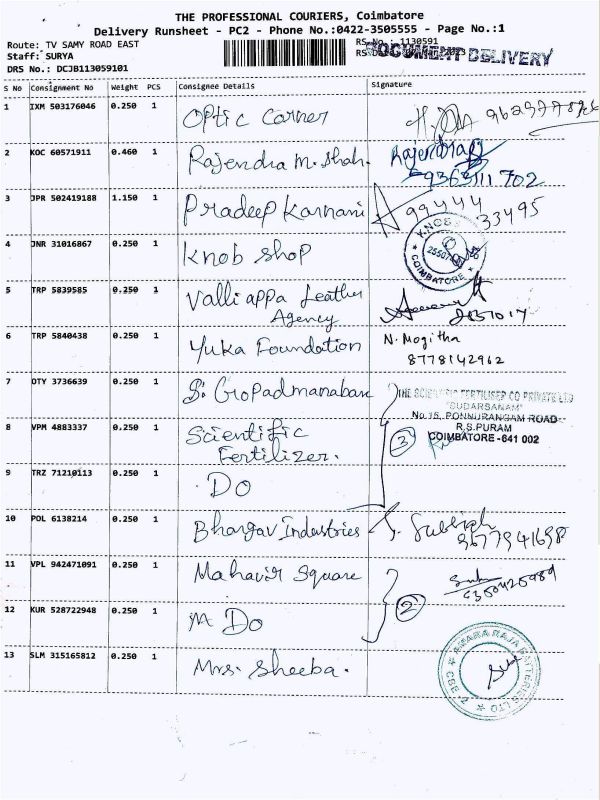 THE PROFESSIONAL COURIERS, Coimbatore
Delivery Runsheet - PC2 - Phone No.:0422-3505555 - Page No.:1
Route: TV SAMY ROAD EAST
RS No.: 1130591
Staff: SURYA
DOCUMENT DELIVERY
DRS No.: DCJB113059101
S No Consignment No Weight PCS Consignee Details Signature
1 IXM 503176046 0.250 1 Optic Corner
2 KOC 60571911 0.460 1 Rajendra M. Shah.
9363111702
3 JPR 502419188 1.150 1 Pradeep Karnani 99444
33495
4 JNR 31016867 0.250 1 Knob Shop
COIMBATORE
5 TRP 5839585 0.250 1 Valliappa Leather
Agency
6 TRP 5840438 0.250 1 Yuka Foundation N. Mogitha
8778142962
7 OTY 3736639 0.250 1 S. Gopadmanaban THE SCIENTIFIC FERTILISER CO PRIVATE LTD
"SUDARSANAM"
No.15, PONNURANGAM ROAD
8 VPM 4883337 0.250 1 Scientific R.S.PURAM
Fertilizer. 3 COIMBATORE - 641 002
9 TRZ 71210113 0.250 1 Do
10 POL 6138214 0.250 1 Bhargav Industries
9677941698
11 VPL 942471091 0.250 1 Mahavir Square
12 KUR 528722948 0.250 1 Do 2
13 SLM 315165812 0.250 1 Mrs. Sheeba.
AMARA RAJA BATTERIES LTD
CBE-2